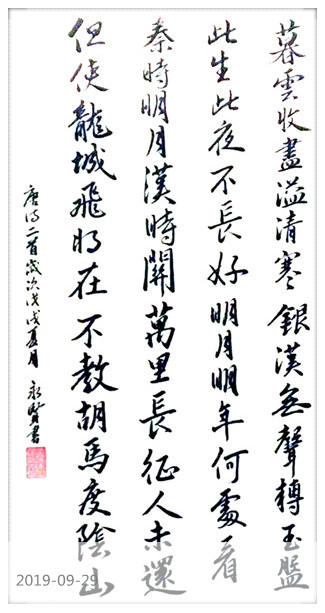 暮雲收盡溢清寒銀漢無聲轉玉盤
此生此夜不長好明月明年何處看
秦時明月漢時關萬里長征人未還
但使龍城飛將在不教胡馬度陰山
唐詩二首歲次戊戌夏月 永賢書
2019-09-29